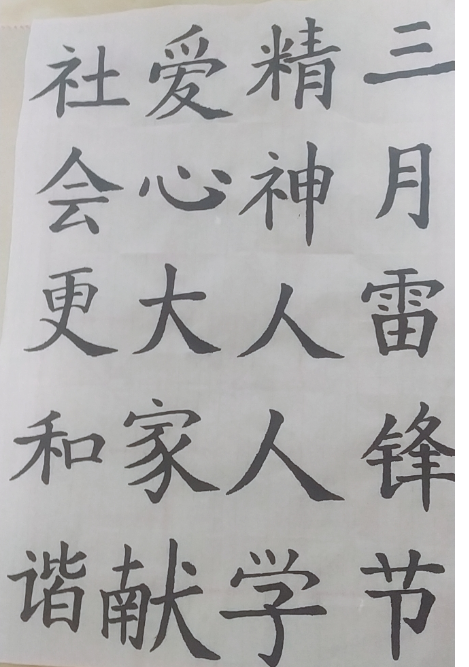 三月雷锋节
精神人人学
爱心大家献
社会更和谐